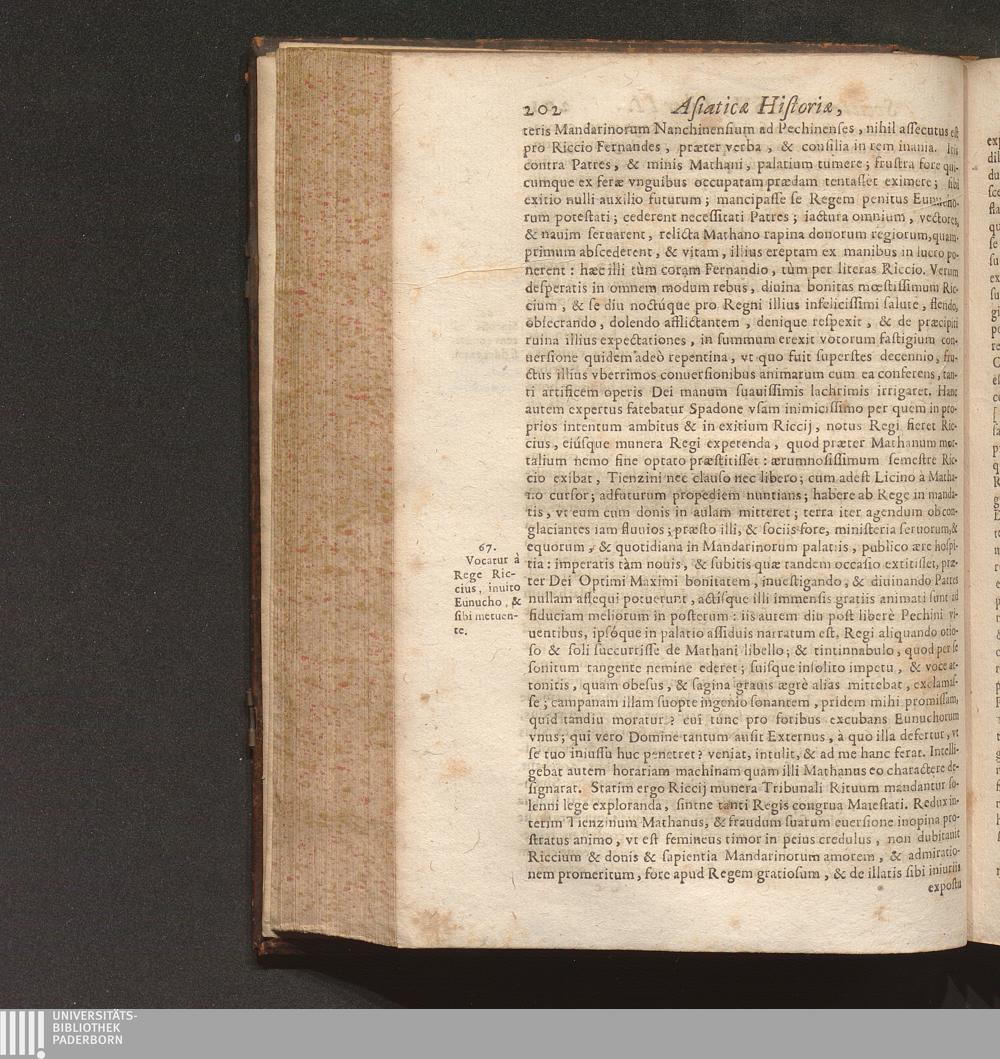 202 Asiaticæ Historiæ,
teris Mandarinorum Nanchinensium ad Pechinenses, nihil assecutus est
pro Riccio Fernandes, præter verba, & consilia in rem inania. Iris
contra Patres, & minis Mathani, palatium tumere; frustra fore qui-
cumque ex feræ vnguibus occupatam prædam tentasset eximere; sibi
exitio nulli auxilio futurum; mancipasse se Regem penitus Eunucho-
rum potestati; cederent necessitati Patres; iactura omnium, vectores,
& nauim seruarent, relicta Mathano rapina donorum regiorum, quam-
primum abscederent, & vitam, illius ereptam ex manibus in lucro po-
nerent: hæc illi tùm coram Fernandio, tùm per literas Riccio. Verum
desperatis in omnem modum rebus, diuina bonitas mœstissimum Ric-
cium, & se diu noctúque pro Regni illius infelicissimi salute, flendo,
obsecrando, dolendo afflictantem, denique respexit, & de præcipiti
ruina illius expectationes, in summum erexit votorum fastigium con-
uersione quidem adeò repentina, vt quo fuit superstes decennio, fru-
ctus illius vberrimos conuersionibus animarum cum ea conferens, tan-
ti artificem operis Dei manum suauissimis lachrimis irrigaret. Hanc
autem expertus fatebatur Spadone vsam inimicissimo per quem in pro-
prios intentum ambitus & in exitium Riccij, notus Regi fieret Ric-
cius, eiúsque munera Regi expetenda, quod præter Mathanum mor-
talium nemo sine optato præstitisset: ærumnosissimum semestre Ric-
cio exibat, Tienzini nec clauso nec libero; cum adest Licino à Matha-
no cursor; adfuturum propediem nuntians; habere ab Rege in manda-
tis, vt eum cum donis in aulam mitteret; terra iter agendum ob con-
glaciantes iam fluuios; præsto illi, & sociis fore, ministeria seruorum, &
equorum, & quotidiana in Mandarinorum palatiis, publico ære hospi-
tia: imperatis tàm nouis, & subitis quæ tandem occasio extitisset, præ-
ter Dei Optimi Maximi bonitatem, inuestigando, & diuinando Patres
nullam assequi potuerunt, actisque illi immensis gratiis animati sunt ad
fiduciam meliorum in posterum: iis autem diu post liberè Pechini vi-
uentibus, ipsóque in palatio assiduis narratum est, Regi aliquando otio-
so & soli succurrisse de Mathani libello; & tintinnabulo, quod per se
sonitum tangente nemine ederet; suisque insolito impetu, & voce at-
tonitis, quam obesus, & sagina grauis ægrè alias mittebat, exclamas-
se; campanam illam suopte ingenio sonantem, pridem mihi promissam,
quid tandiu moratur? cui tunc pro foribus excubans Eunuchorum
vnus; qui vero Domine tantum ausit Externus, à quo illa defertur, vt
se tuo iniussu huc penetret? veniat, intulit, & ad me hanc ferat. Intelli-
gebat autem horariam machinam quam illi Mathanus eo charactere de-
signarat. Statim ergo Riccij munera Tribunali Rituum mandantur so-
lenni lege exploranda, sintne tanti Regis congrua Maiestati. Redux in-
terim Tienzinum Mathanus, & fraudum suarum euersione inopina pro-
stratus animo, vt est femineus timor in peius credulus, non dubitauit
Riccium & donis & sapientia Mandarinorum amorem, & admiratio-
nem promeritum, fore apud Regem gratiosum, & de illatis sibi iniuriis
expostu
67.
Vocatur à
Rege Ric-
cius, inuito
Eunucho, &
sibi metuen-
te.
UNIVERSITÄTS-
BIBLIOTHEK
PADERBORN